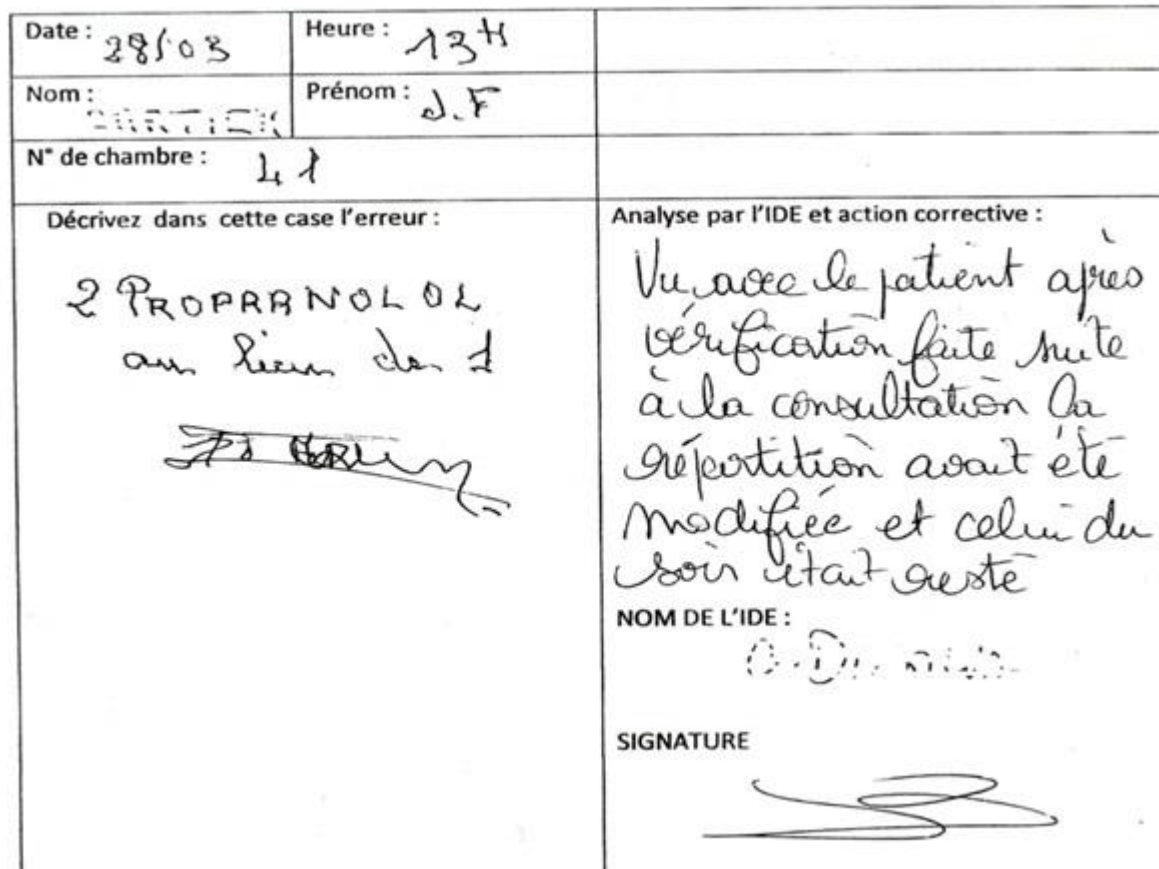 Date : 28/03
Heure : 13H
Nom :
Prénom : J.F
N° de chambre : 41
Décrivez dans cette case l'erreur :
2 PROPRANOLOL
au lieu de 1
Analyse par l'IDE et action corrective :
Vu avec le patient après
vérification faite suite
à la consultation la
répartition avait été
modifiée et celui du
soir était resté
NOM DE L'IDE :
SIGNATURE